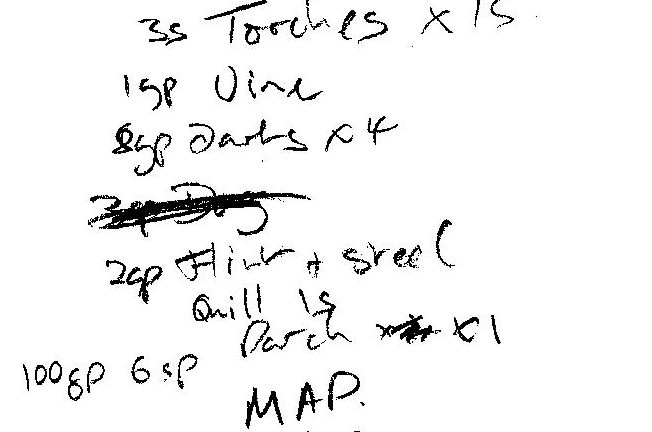 3s Torches x 15
1gp Vine
8gp Darts x 4
2gp Flint + steel
Quill 1s
Parch x1
100gp 6sp
MAP.